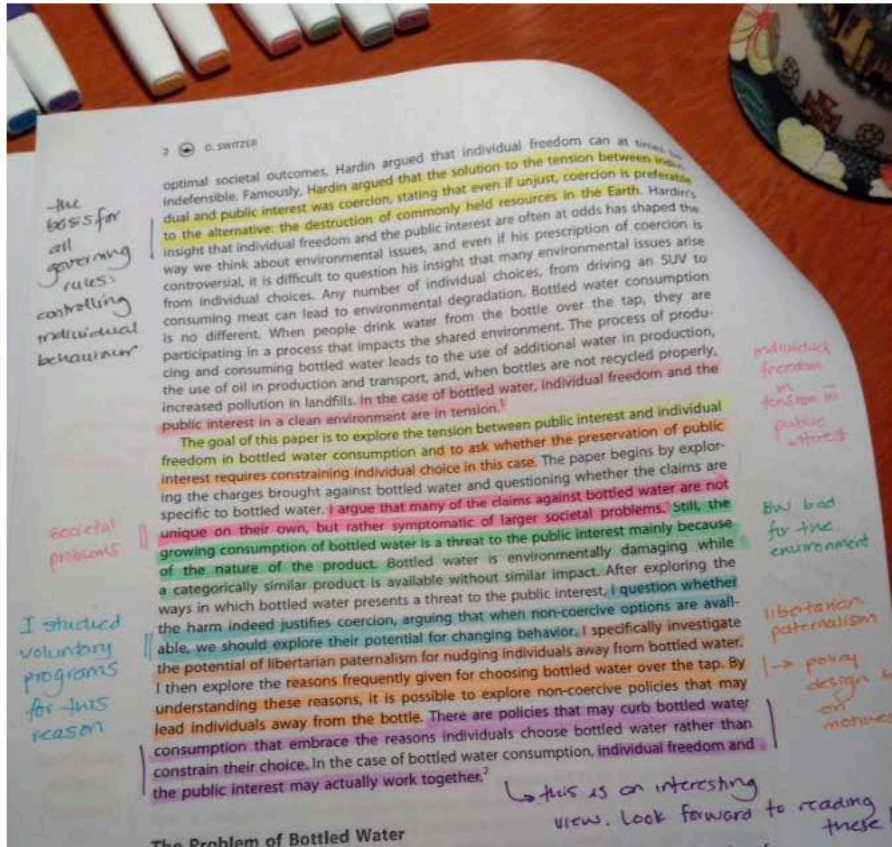 2 D. SWITZER
optimal societal outcomes, Hardin argued that individual freedom can at times be
indefensible. Famously, Hardin argued that the solution to the tension between indivi-
dual and public interest was coercion, stating that even if unjust, coercion is preferable
to the alternative: the destruction of commonly held resources in the Earth. Hardin's
insight that individual freedom and the public interest are often at odds has shaped the
way we think about environmental issues, and even if his prescription of coercion is
controversial, it is difficult to question his insight that many environmental issues arise
from individual choices. Any number of individual choices, from driving an SUV to
consuming meat can lead to environmental degradation. Bottled water consumption
is no different. When people drink water from the bottle over the tap, they are
participating in a process that impacts the shared environment. The process of produ-
cing and consuming bottled water leads to the use of additional water in production,
the use of oil in production and transport, and, when bottles are not recycled properly,
increased pollution in landfills. In the case of bottled water, individual freedom and the
public interest in a clean environment are in tension.1
The goal of this paper is to explore the tension between public interest and individual
freedom in bottled water consumption and to ask whether the preservation of public
interest requires constraining individual choice in this case. The paper begins by explor-
ing the charges brought against bottled water and questioning whether the claims are
specific to bottled water. I argue that many of the claims against bottled water are not
unique on their own, but rather symptomatic of larger societal problems. Still, the
growing consumption of bottled water is a threat to the public interest mainly because
of the nature of the product. Bottled water is environmentally damaging while
a categorically similar product is available without similar impact. After exploring the
ways in which bottled water presents a threat to the public interest, I question whether
the harm indeed justifies coercion, arguing that when non-coercive options are avail-
able, we should explore their potential for changing behavior. I specifically investigate
the potential of libertarian paternalism for nudging individuals away from bottled water.
I then explore the reasons frequently given for choosing bottled water over the tap. By
understanding these reasons, it is possible to explore non-coercive policies that may
lead individuals away from the bottle. There are policies that may curb bottled water
consumption that embrace the reasons individuals choose bottled water rather than
constrain their choice. In the case of bottled water consumption, individual freedom and
the public interest may actually work together.2
The Problem of Bottled Water
the
basis for
all
governing
rules:
controlling
individual
behaviour
societal
problems
I studied
voluntary
programs
for this
reason
individual
freedom
in
tension w
public
interest
BW bad
for the
environment
libertarian
paternalism
→ policy
design
on
↳ this is an interesting
view. Look forward to reading
these